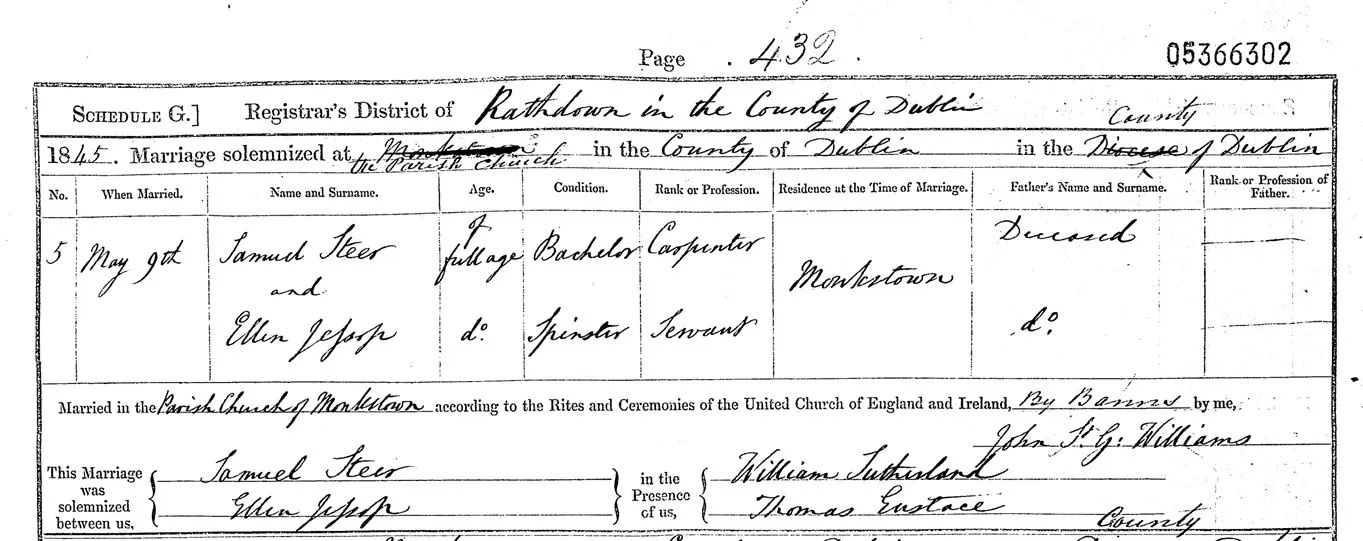 Page . 432 . 05366302
SCHEDULE G.] Registrar's District of Rathdown in the County of Dublin
County
1845. Marriage solemnized at Monkstown in the County of Dublin in the Diocese of Dublin
the Parish Church
No. When Married. Name and Surname. Age. Condition. Rank or Profession. Residence at the Time of Marriage. Father's Name and Surname. Rank or Profession of Father.
5 May 9th Samuel Steer of full age Bachelor Carpenter Deceased
and Monkstown
Ellen Jessop do. Spinster Servant do.
Married in the Parish Church of Monkstown according to the Rites and Ceremonies of the United Church of England and Ireland, By Banns by me,
John St. G. Williams
This Marriage was solemnized between us, Samuel Steer in the Presence of us, William Sutherland
Ellen Jessop Thomas Eustace
County